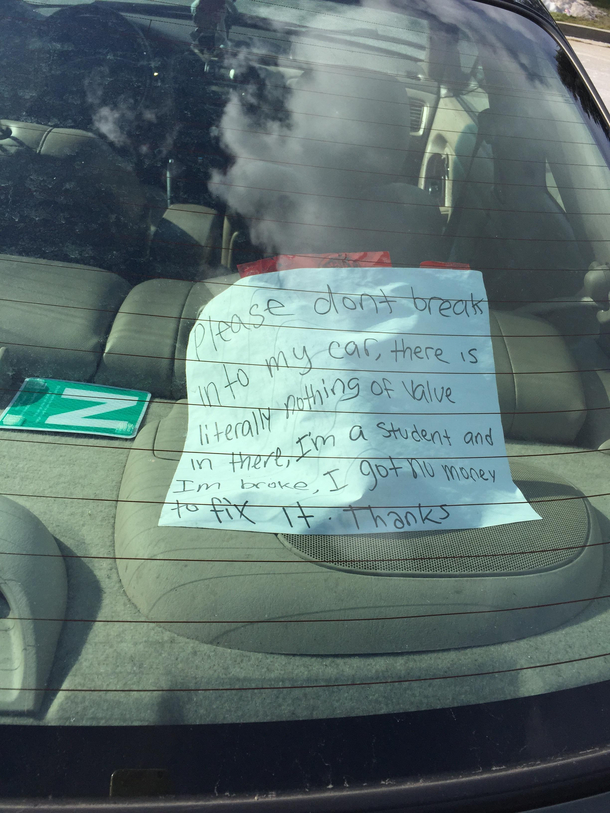 Please dont break
into my car, there is
literally nothing of value
in there, I'm a student and
Im broke, I got no money
to fix it. Thanks
N